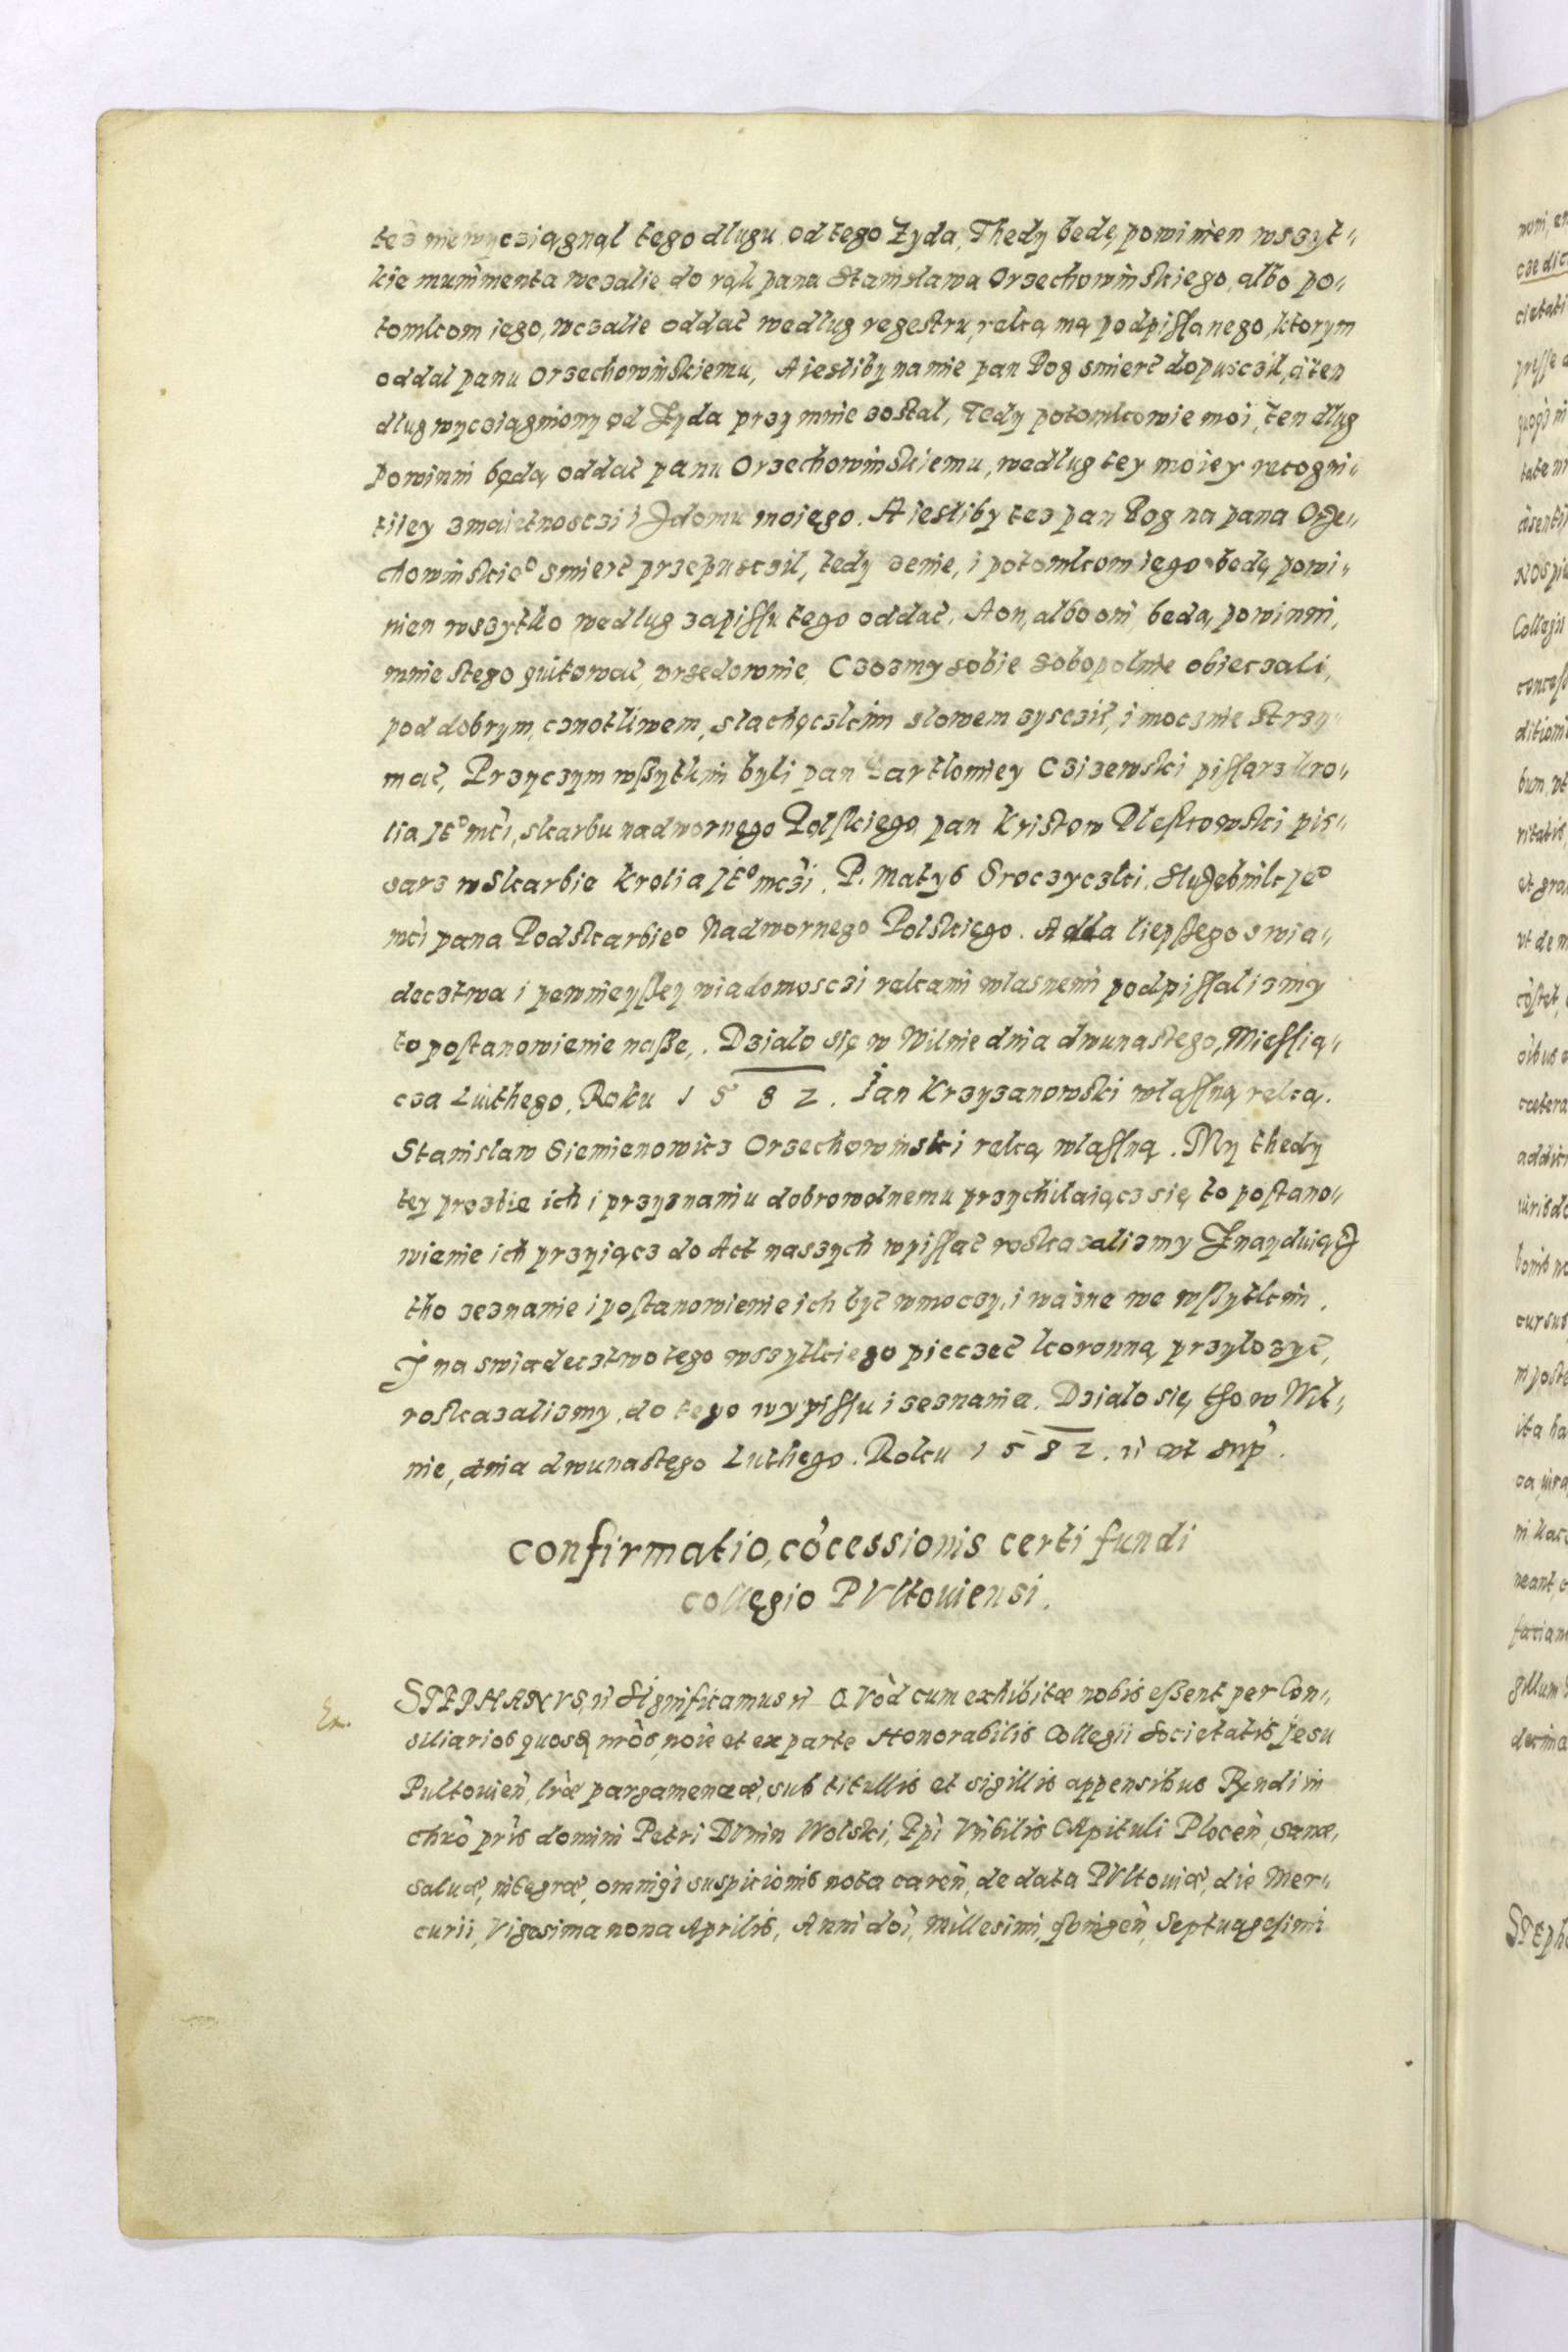 tez niewyciągnąl tego dlugu od tego Zyda, Thedy bedę powinien wszyt„
kie munimenta wczalie do rąk pana Stanisława Orzechowinskiego, albo po„
tomkom iego, wczalie oddać według regestru, ręką mą podpissanego, ktorym
oddal panu Orzechowinskiemu, A iesliby na mie pan Bog smierć dopuscził, a ten
dlug wycziągniony od Zyda przy mnie zostal, Tedy potomkowie moi, ten dlug
powinni będą oddać panu Orzechowinskiemu, wedlug tey moiey recogni„
tiiey z maietnosczi i z domu moięgo. A iesliby tez pan Bog na pana Orze„
chowinskieo smierć przepusczil, tedy zenie, i potomkom iego bedę powi„
nien wszytko wedlug zapissu tego oddać. A on, albo oni bedą powinni,
mnie stego quitować, vrzedownie, Czosmy sobie sobopolnie obieczali,
pod dobrym, cznotliwem, slachęczkim slowem zysczić, i mocznie strzy„
mać, Przyczym wszytkim byli pan Bartlomiey Czizewski pissarz kro„
lia Jeo mci, skarbu nadwornęgo Polskięgo, pan Kristow Pleskowski pis„
sarz w Skarbie Krolia Jeo mczi, P. Matys Sroczyczki, Sluzebnik Jeo
mci pana Podskarbieo Nadwornego Polskięgo. A dla liepszego swia„
decztwa i pewnieyszey wiadomosczi rękami wlasnemi podpissalismy
to postanowienie nasze, Dzialo się w Wilnie dnia dwunastego, Miesią„
cza Luthego, Roku 1582. Jan Krzyzanowski własną ręką.
Stanislaw Siemienowicz Orzechowinski ręką wlassną. My thedy
tey prozbie ich i przyznaniu dobrowolnemu przychilaiącz się to postano„
wienie ich przyiącz do Act naszych wpissać roskazalismy Znayduiąc
tho zeznanie i postanowienie ich być w moczy, i wazne we wszytkim.
I na swiadecztwo tego wszytkiego pieczeć koronną przylozyć,
roskazalismy, do tego wypissu i zeznania. Dzialo się tho w Wil„
nie, dnia dwunastęgo Luthego. Roku 1582. ut sup.
Confirmatio, cocessionis certi fundi
collęgio PVltouiensi.
Ex.
STEPHANVS, Significamus QVod cum exhibitæ nobis essent per Con„
siliarios quosdam nros, noie et ex parte Honorabilis Collegii Societatis Jesu
Pultouien, lræ pargameneæ, sub titullis et sigillis appensibus Rndi in
chro pris domini Petri DVnin Wolski, Epi Vnbilis CApituli Plocen, sanæ,
saluæ, integræ, omniqi suspicionis nota caren, de data PVltouiæ, die Mer„
curii, Vigesima nona Aprilis, Anni doi, Millesimi, qbuingen, Septuagesimi